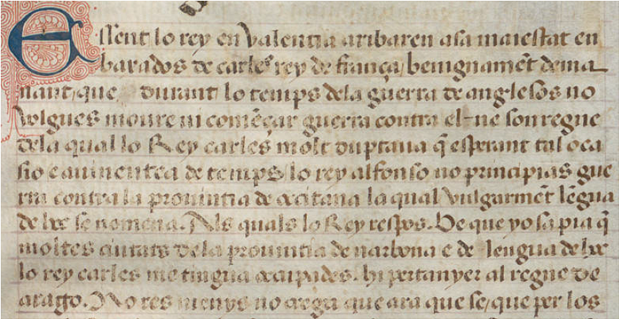 Essent lo rey en Valentia aribaren a sa maiestat en
barados de carles rey de frança, benignamēt dema
nant, que durant lo temps de la guerra de anglesos no
volgues moure ni comēçar guerra contra el ne son regne
de la qual lo Rey carles molt duptaua q̄ esperant tal oca
sio e auinentea de temps, lo rey alfonso no principias gue
rra contra la prouintia de occitana la qual vulgarmēt lēgua
de hoc se nomena. Als quals lo Rey respos. Be que yo sapia q̄
moltes ciutats de la prouintia de narbona e de lengua de hoc
lo rey carles me tingua occupades. hi pertanyer al regne de
arago. No res menys no crega que ara que se, que per los